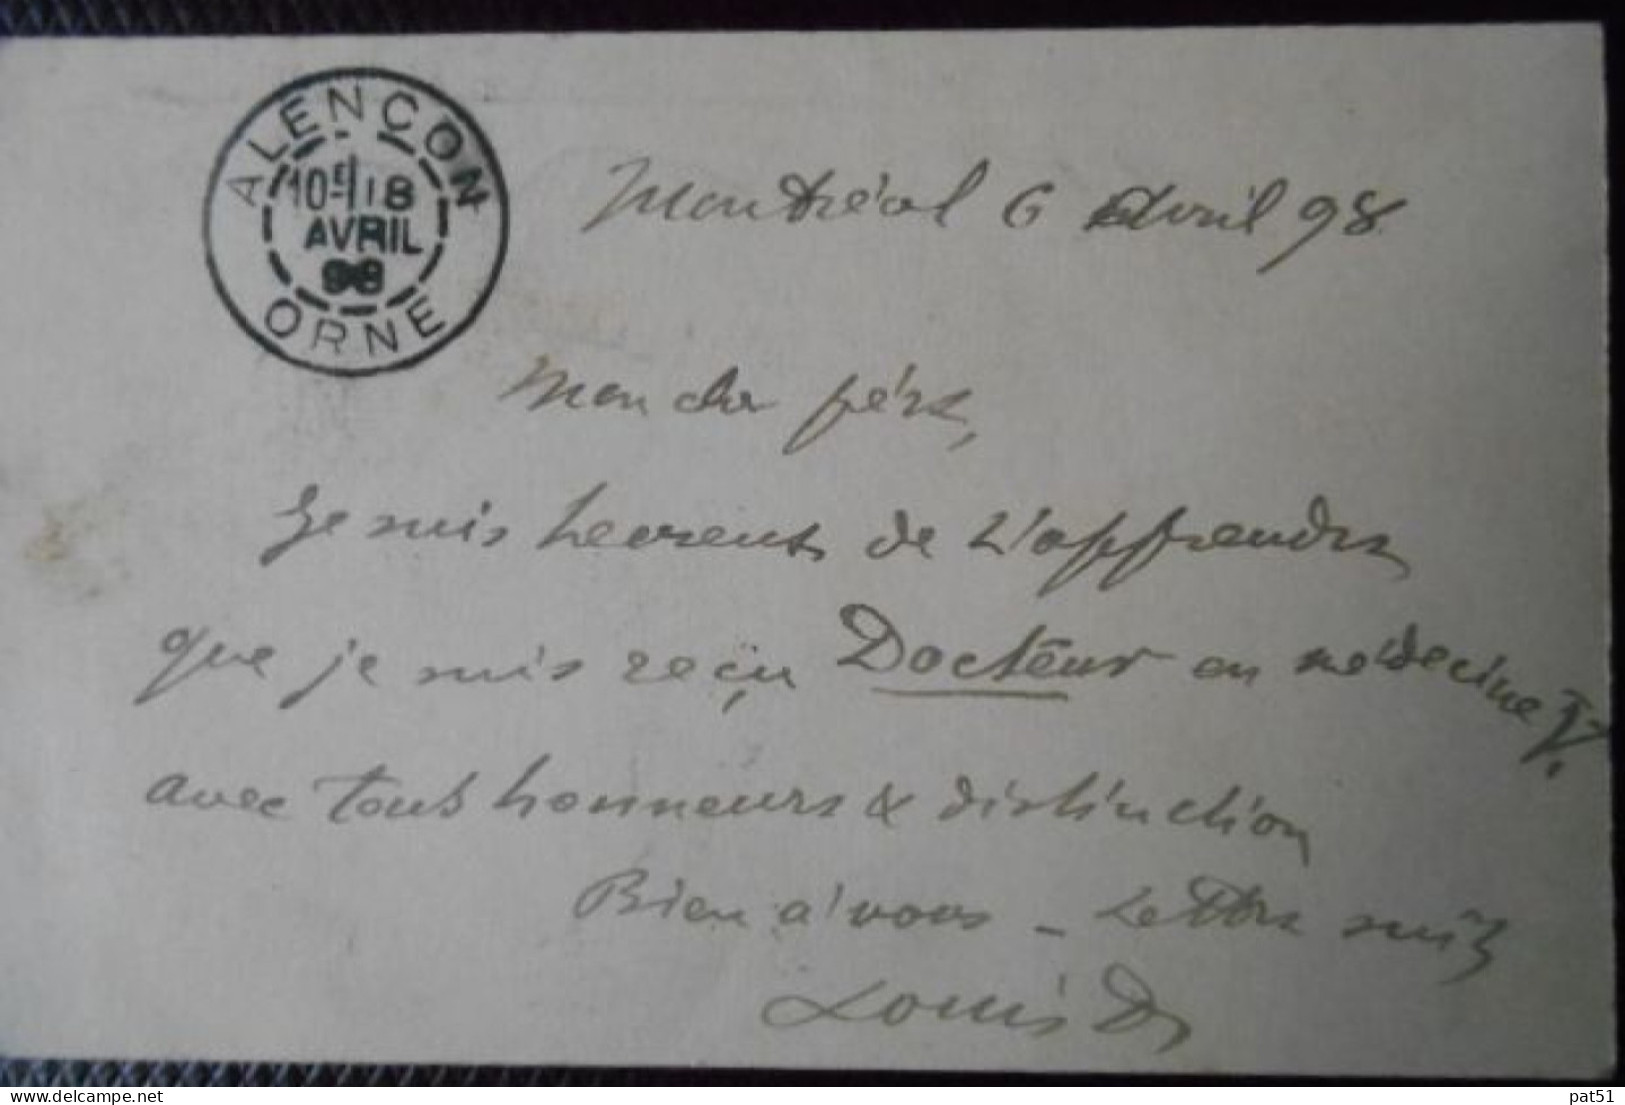 ALENÇON
10E 18
AVRIL
98
ORNE
Montréal 6 Avril 98.
Mon cher père,
Je suis heureux de t'apprendre
que je suis reçu Docteur en médecine V.
avec tous honneurs & distinction
Bien à vous - Lettre suit
Louis Dr
delcampe.net
pat51